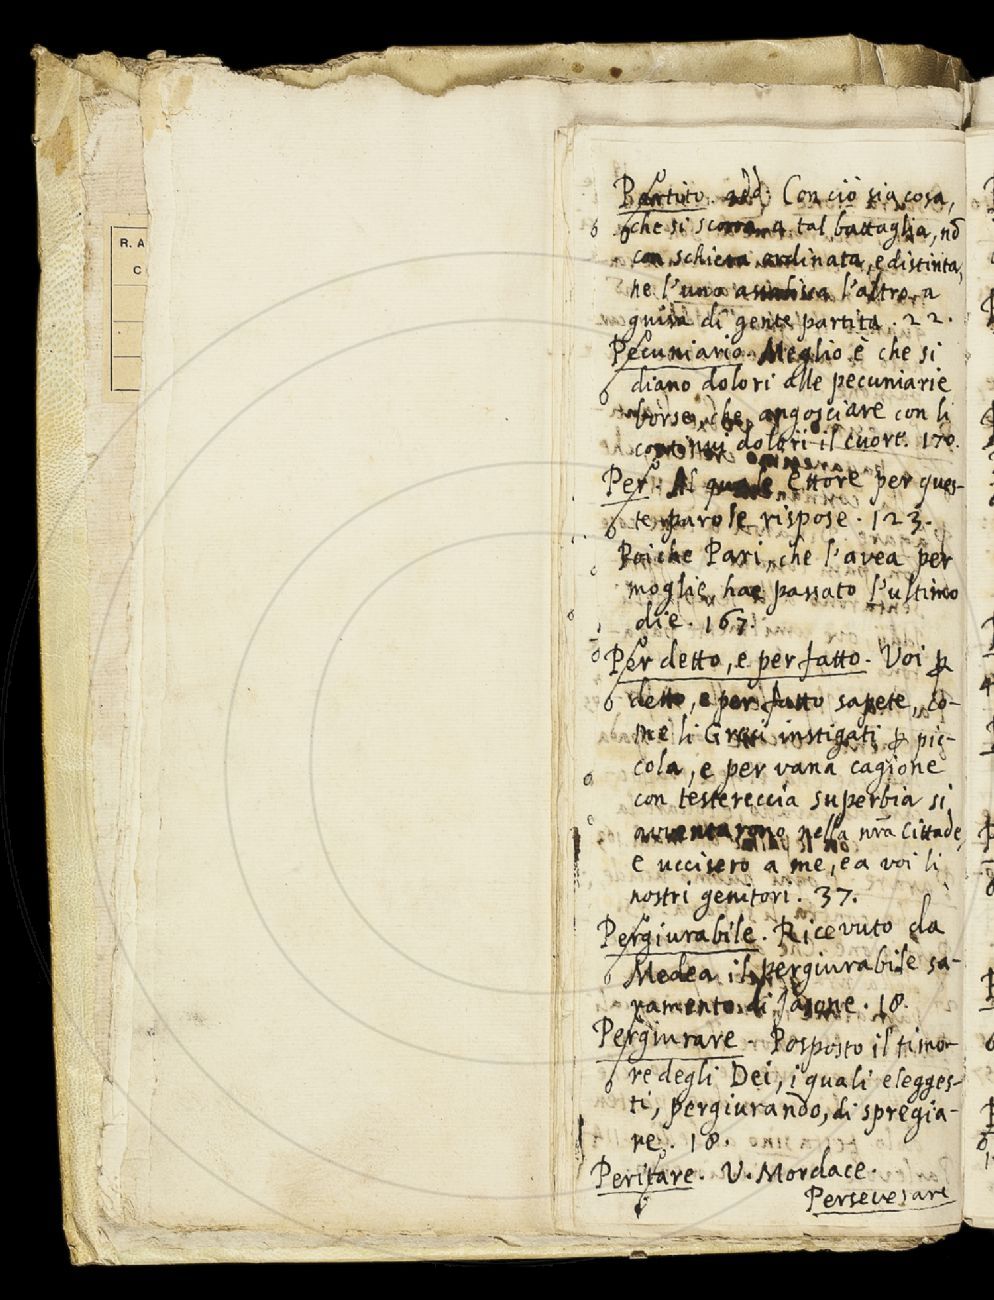 R. A
C
Partito. add. Conciò sia cosa,
che si scorra a tal battaglia, nō
con schiera ordinata, e distinta,
ne l'uno assalisca l'altro, a
guisa di gente partita. 22.
Pecuniario. Meglio è che si
diano dolori alle pecuniarie
borse, che angosciare con li
continui dolori il cuore. 170.
Per. Al quale Ettore per ques-
te parole rispose. 123.
Poiche Pari, che l'avea per
moglie, hae passato l'ultimo
die. 167.
Per detto, e per fatto. Voi ꝑ
detto, e per fatto sapete, co-
me li Greci instigati ꝑ pic-
cola, e per vana cagione
con testereccia superbia si
avventarono nella nrã Cittade,
e uccisero a me, e a voi li
nostri genitori. 37.
Pergiurabile. Ricevuto da
Medea il pergiurabile sa-
ramento di Jasone. 18.
Pergiurare. Posposto il timo-
re degli Dei, i quali elegges-
ti, pergiurando, di spregia-
re. 18.
Peritare. V. Mordace.
Perseverare